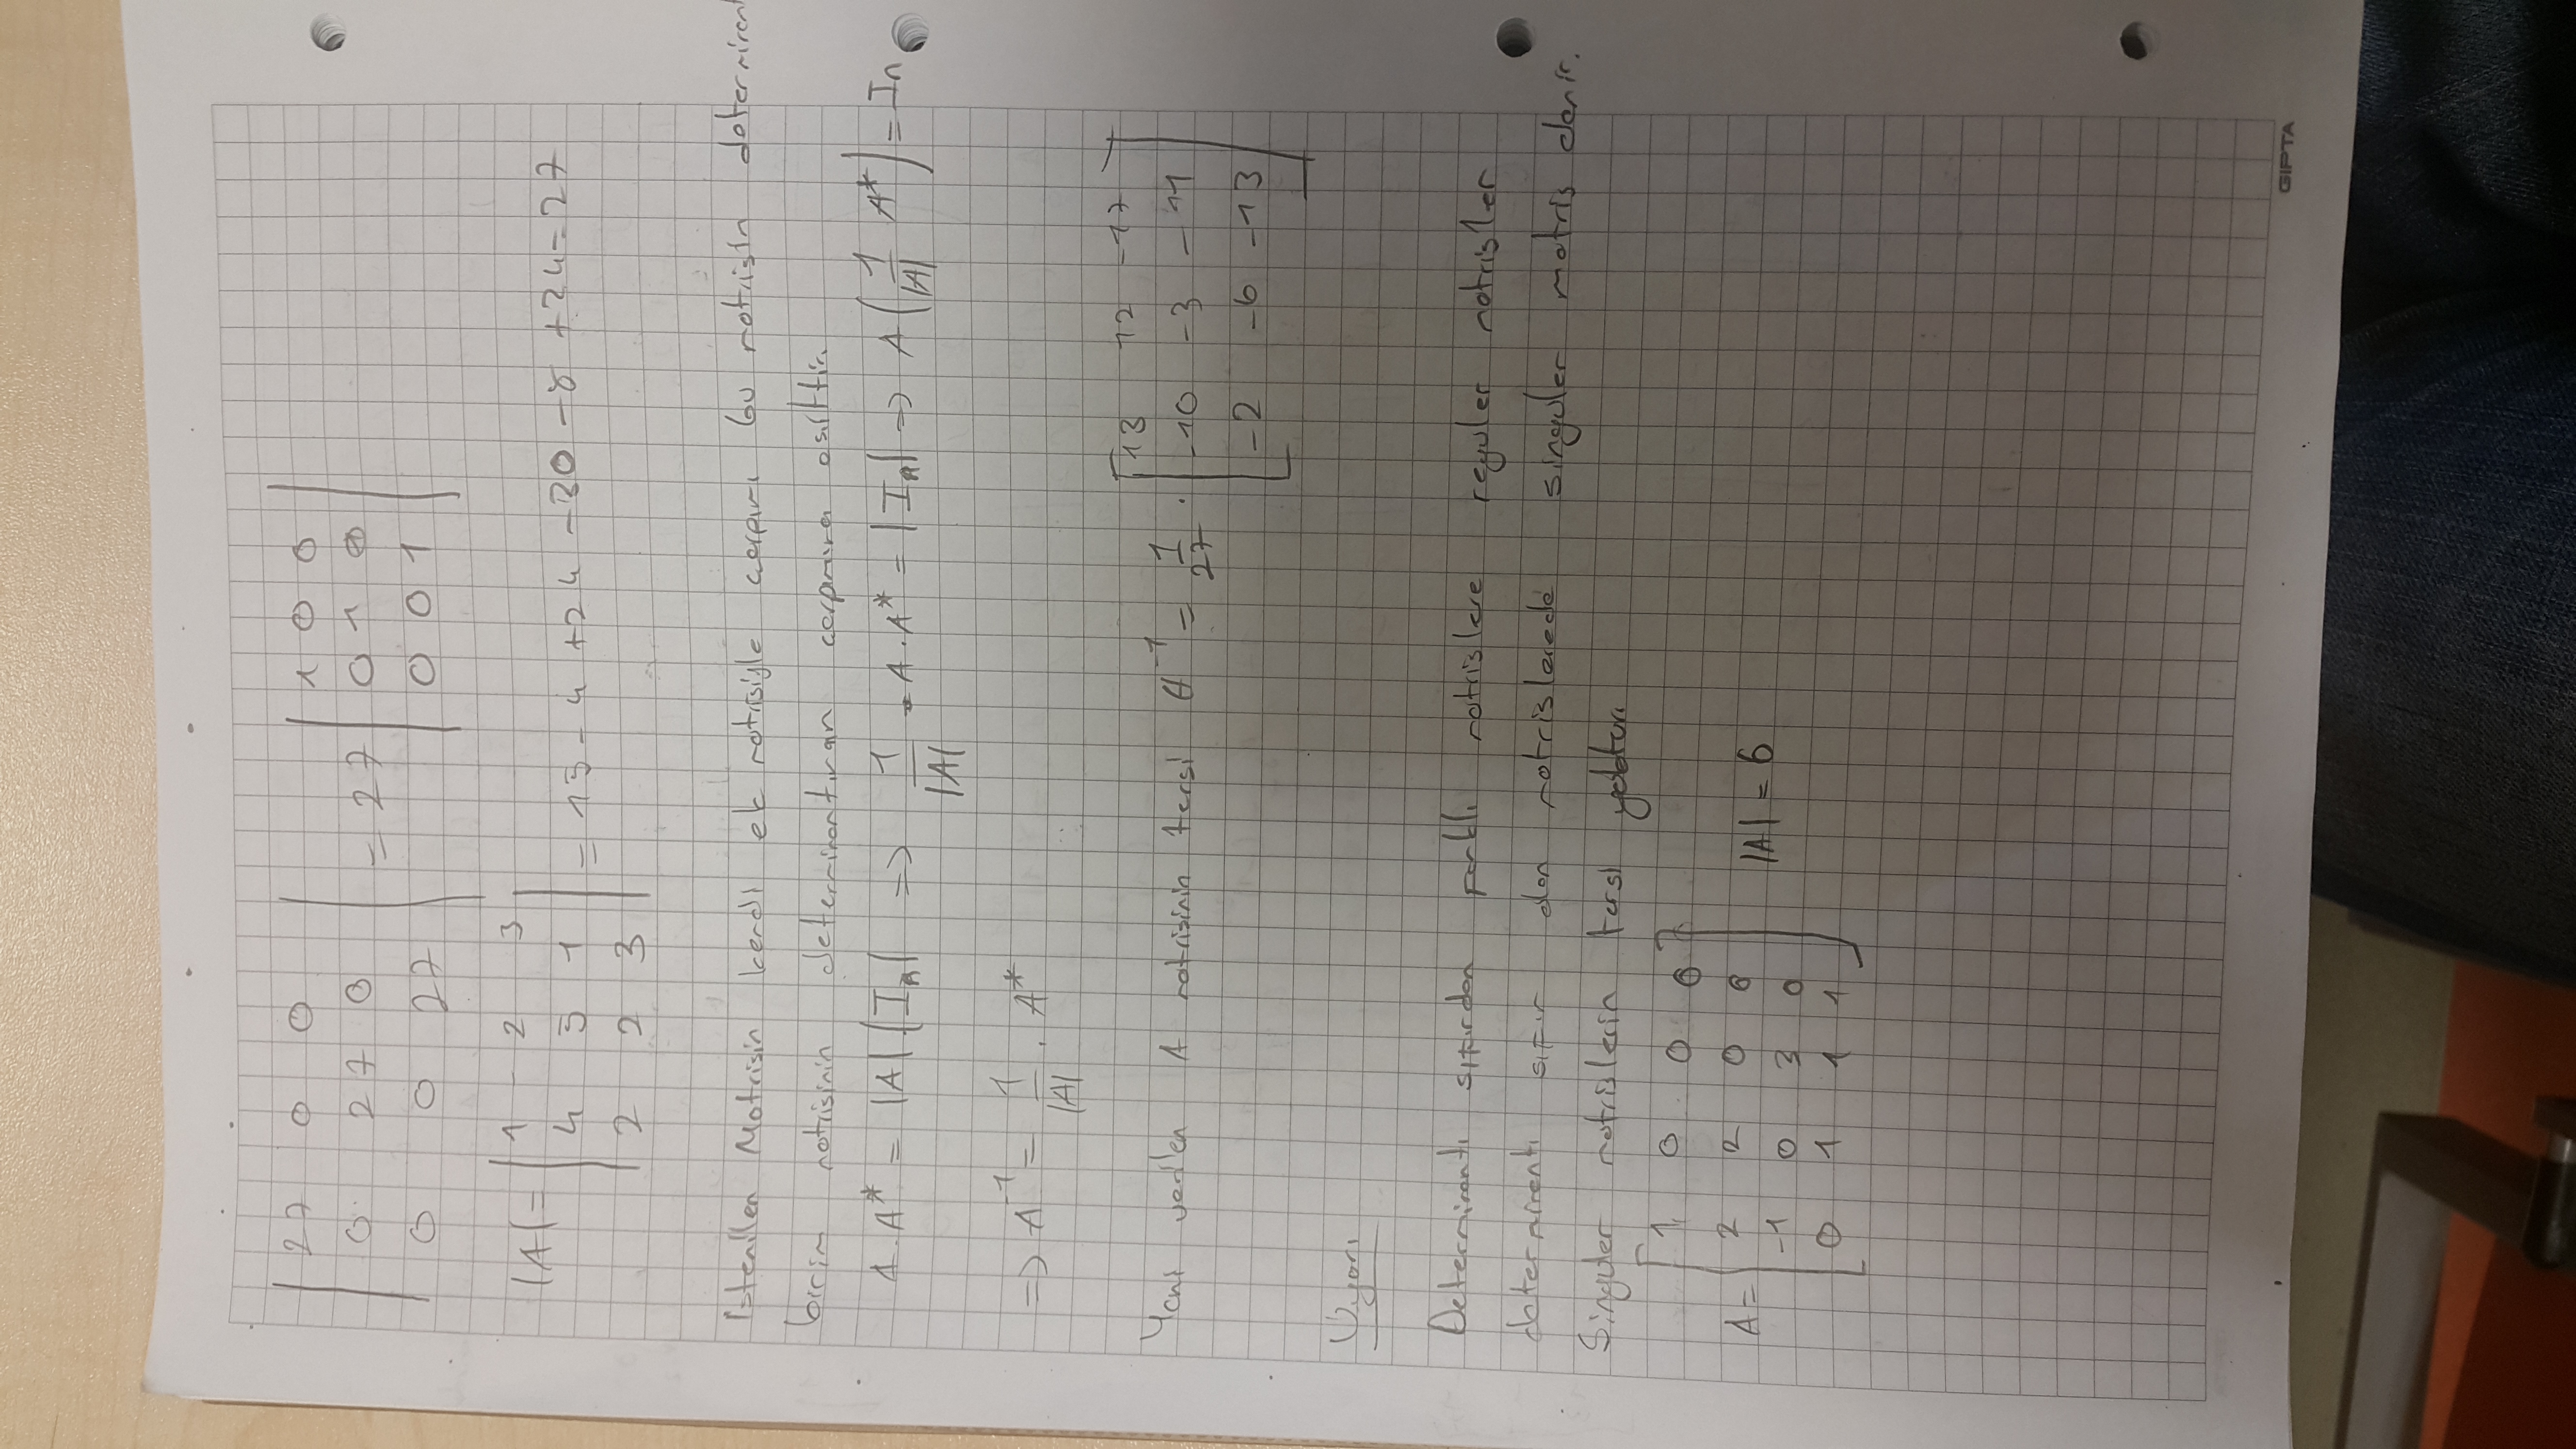 | 27 0 0 | | 1 0 0 |
| 0 27 0 | = 27 | 0 1 0 |
| 0 0 27 | | 0 0 1 |
| 1 - 2 3 |
|A| = | 4 5 1 | = 15 - 4 + 24 - 30 - 8 + 24 = 27
| 2 2 3 |
Istenilen Matrisin kendi ek matrisiyle çarpımı bu matrisin determinant
birim matrisinin determinantının çarpımına eşittir.
A.A* = |A| |In| => 1/|A| . A.A* = |In| => A(1/|A| A*) = In
=> A^-1 = 1/|A| . A*
[ 13 12 -17 ]
Yani verilen A matrisinin tersi A^-1 = 1/27 . [ -10 -3 -11 ]
[ -2 -6 -13 ]
Uyarı
Determinantı sıfırdan farklı matrislere reguler matrisler
determinantı sıfır olan matrislerede singuler matris denir.
Singuler matrislerin tersi yoktur.
[ 1 0 0 0 ]
A = [ 2 2 0 0 ] |A| = 6
[ -1 0 3 0 ]
[ 0 1 1 1 ]
GIPTA